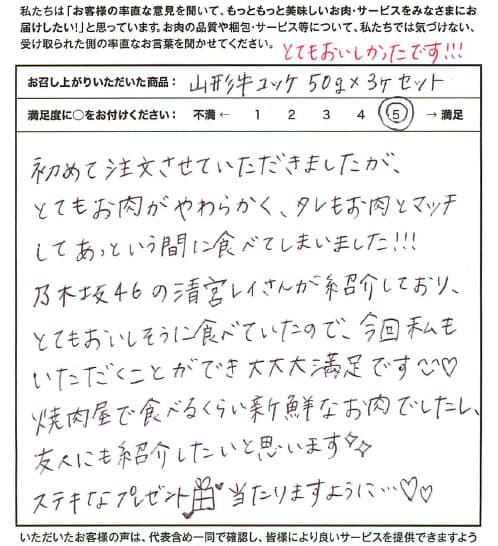 私たちは「お客様の率直な意見を聞いて、もっともっと美味しいお肉・サービスをみなさまにお
届けしたい!」と思っています。お肉の品質や梱包・サービス等について、私たちでは気づけない、
受け取られた側の率直なお言葉を聞かせてください。
とてもおいしかったです!!!
お召し上がりいただいた商品: 山形牛ユッケ 50g×3ヶセット
満足度に○をお付けください: 不満 ← 1 2 3 4 5 → 満足
初めて注文させていただきましたが、
とてもお肉がやわらかく、タレもお肉とマッチ
してあっという間に食べてしまいました!!!
乃木坂46の清宮レイさんが紹介しており、
とてもおいしそうに食べていたので、今回私も
いただくことができ大大大満足です♡
焼肉屋で食べるくらい新鮮なお肉でしたし、
友人にも紹介したいと思います
ステキなプレゼント当たりますように…♡♡
いただいたお客様の声は、代表含め一同で確認し、皆様により良いサービスを提供できますよう